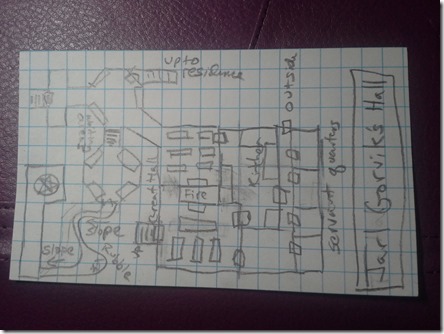 up to
residence
outside
Great Hall
Fire
Kitchen
servant quarters
Slope
Slope
Rubble
Jarl Gorvik's Hall